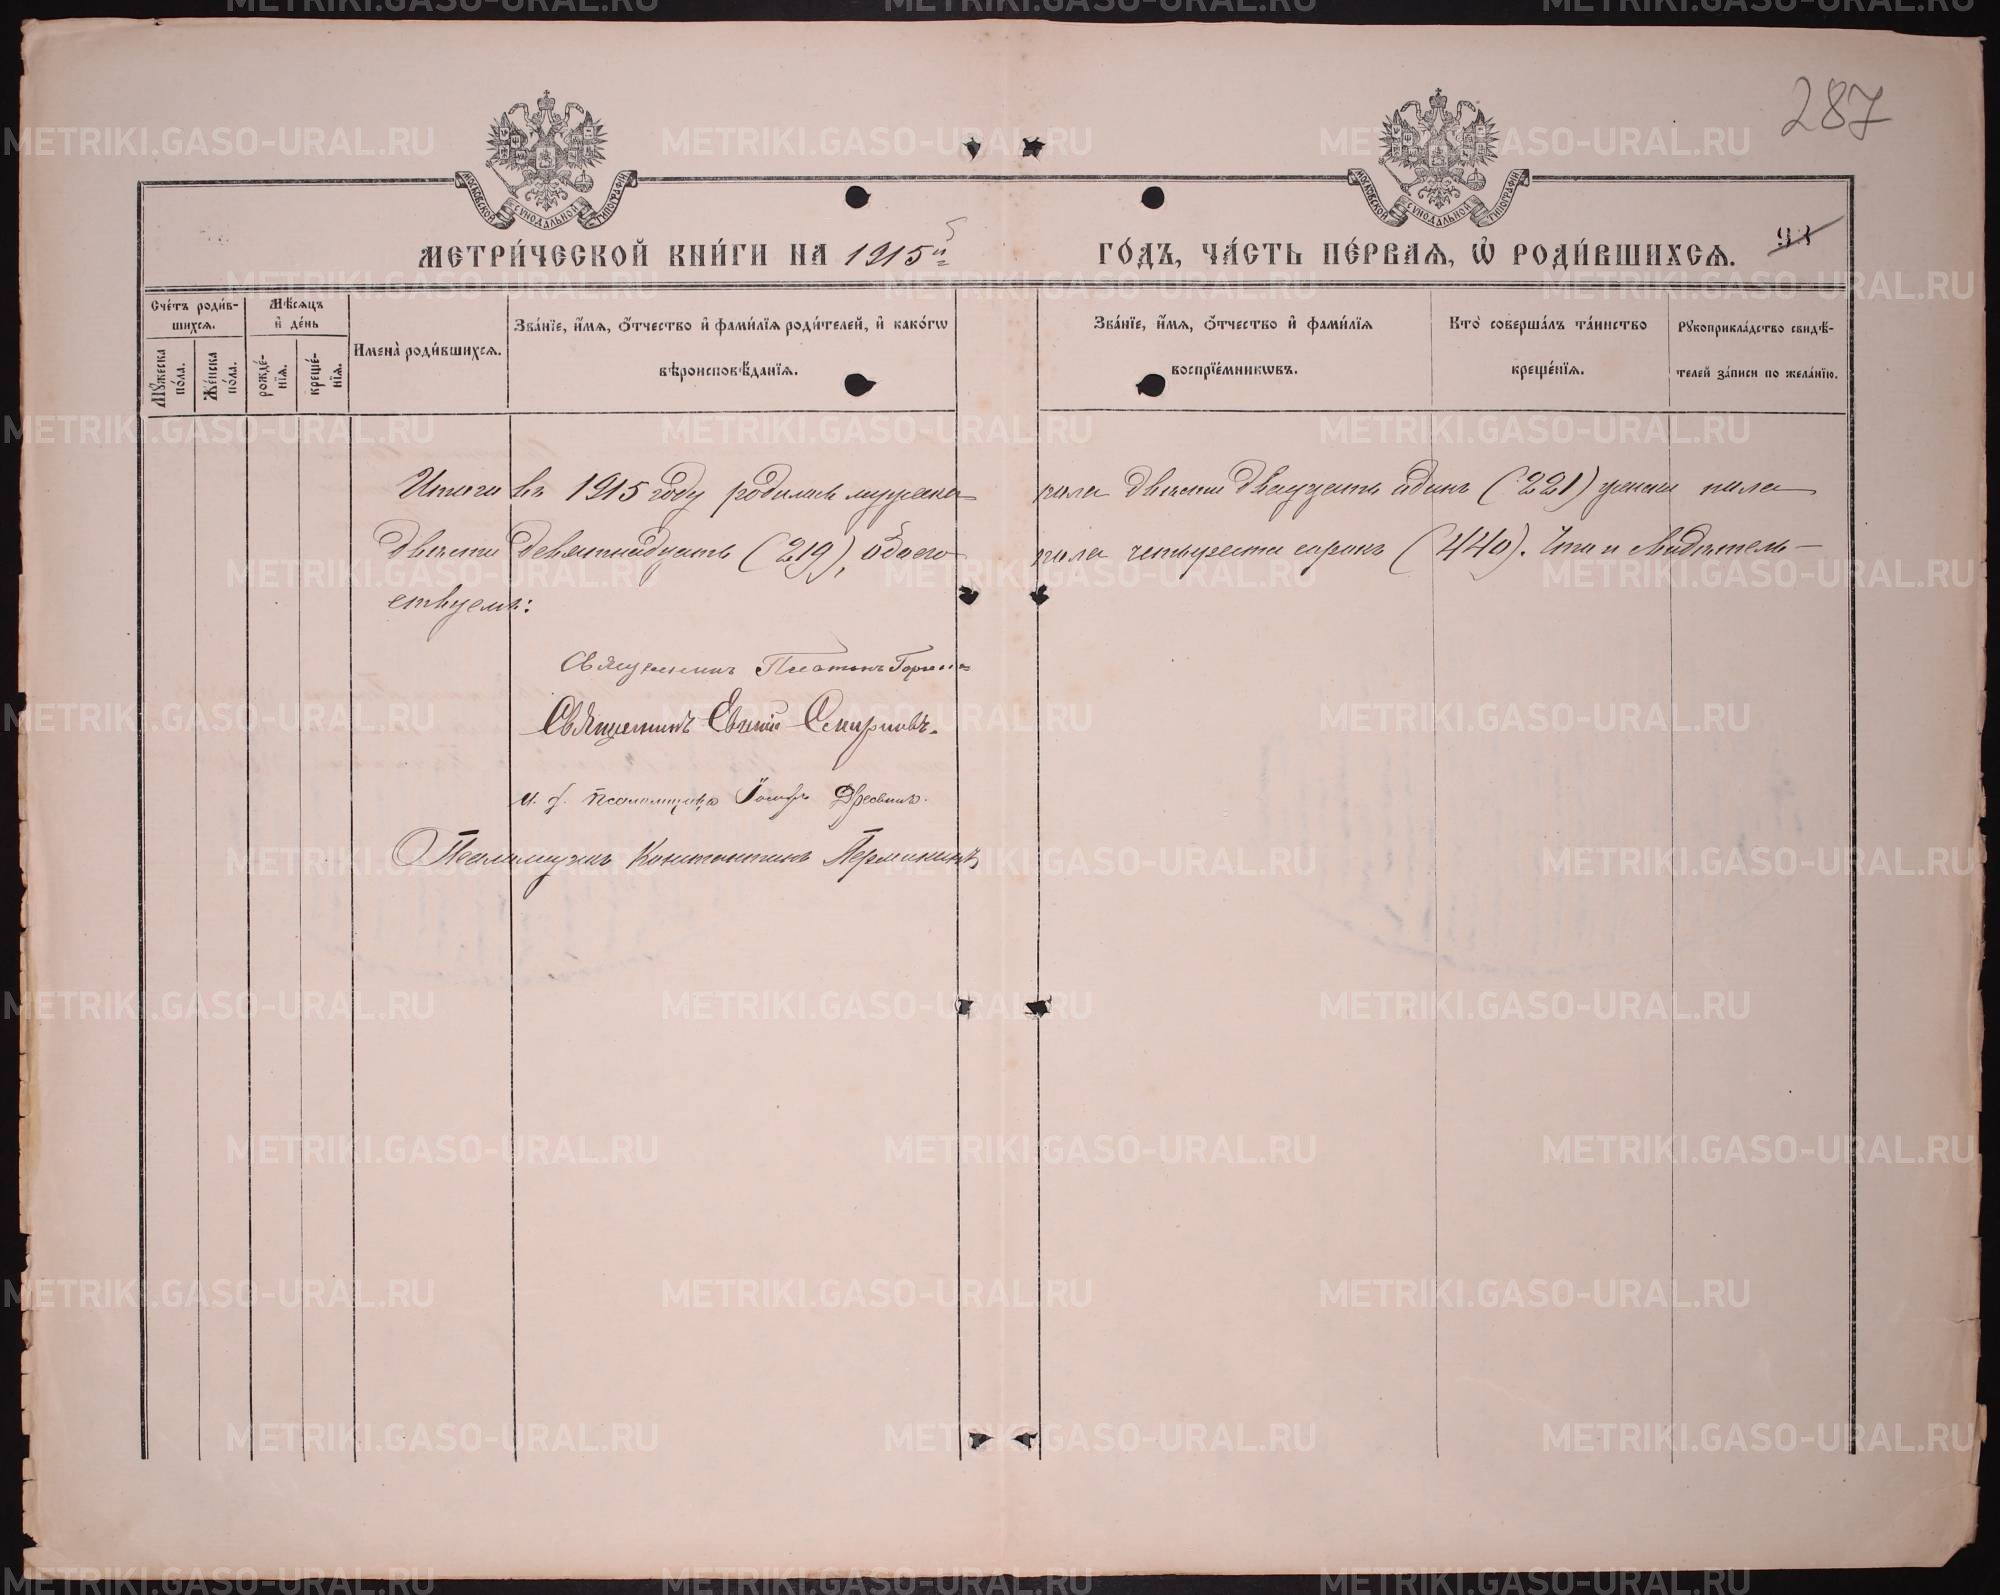 287
МОСКОВСКОЙ СУНОДАЛЬНОЙ ТИПОГРАФИИ
МОСКОВСКОЙ СУНОДАЛЬНОЙ ТИПОГРАФИИ
МЕТРИ́ЧЕСКОЙ КНИ́ГИ НА 1915й ГО́ДЪ, ЧА́СТЬ ПЕ́РВАЯ, Ѽ РОДИ́ВШИХСЯ. 93
Сче́тъ роди́вшихся.
Мѣсяцъ и де́нь
Мꙋжеска по́ла.
Же́нска по́ла.
рожде́нїя.
креще́нїя.
Имена̀ роди́вшихся.
Зва́нїе, и́мя, о́тчество и фами́лїя роди́телей, и како́гѡ вѣроисповѣ́данїя.
Зва́нїе, и́мя, о́тчество и фами́лїя воспрїе́мникѡвъ.
Кто̀ соверша́лъ та́инство креще́нїя.
Рꙋкоприкла́дство свидѣ́телей за́писи по жела́нїю.
Итого въ 1915 году родилось мужеска пола двѣсти двадцать одинъ (221) женска пола
двѣсти девятнадцать (219), обоего пола четыреста сорокъ (440). Что и свидѣтель-
ствуемъ:
Священникъ Платонъ
Священникъ Евгеній Смирновъ.
и. д. псаломщика Іосифъ
Псаломщикъ Константинъ Перминовъ
METRIKI.GASO-URAL.RU